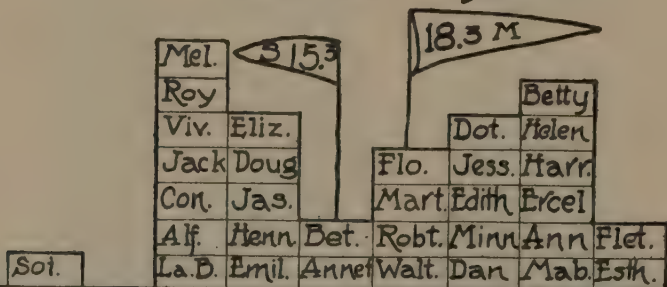 Mel. S 15.3 18.3 M
Roy Betty
Viv. Eliz. Dot. Helen
Jack Doug Flo. Jess. Harr.
Con. Jas. Mart. Edith Ercel
Alf. Henn Bet. Robt. Minn Ann Flet.
Sol. La.B. Emil. Annet Walt. Dan Mab. Esth.